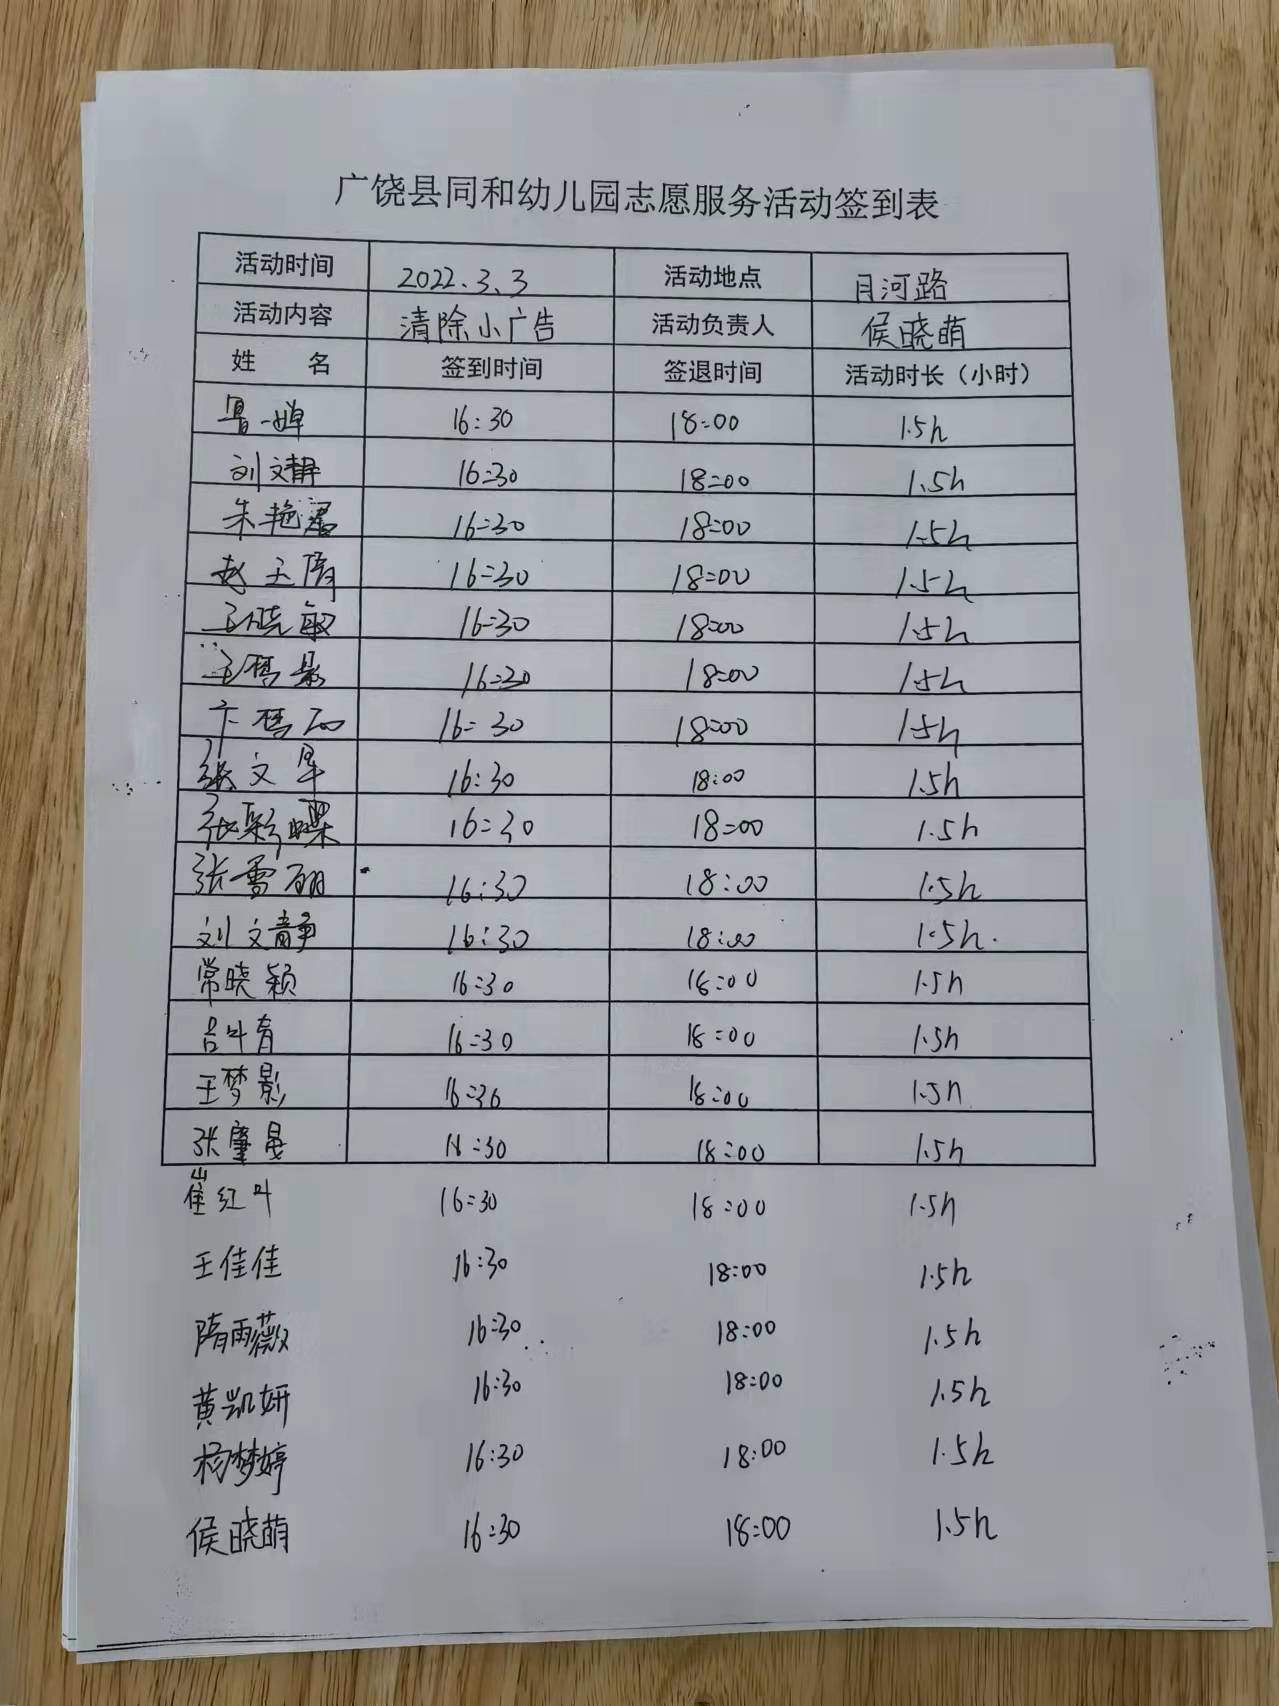 广饶县同和幼儿园志愿服务活动签到表
活动时间 2022.3.3 活动地点 月河路
活动内容 清除小广告 活动负责人 侯晓萌
姓 名 签到时间 签退时间 活动时长（小时）
一婵 16:30 18:00 1.5h
刘文静 16:30 18:00 1.5h
朱艳 16:30 18:00 1.5h
赵玉 16:30 18:00 1.5h
王晓敏 16:30 18:00 1.5h
16:30 18:00 1.5h
卞 16:30 18:00 1.5h
张文 16:30 18:00 1.5h
张彩蝶 16:30 18:00 1.5h
张雪 16:30 18:00 1.5h
刘文静 16:30 18:00 1.5h.
常晓颖 16:30 18:00 1.5h
16:30 18:00 1.5h
王梦影 16:30 18:00 1.5h
张肇晏 16:30 18:00 1.5h
崔红叶 16:30 18:00 1.5h
王佳佳 16:30 18:00 1.5h
隋雨薇 16:30 18:00 1.5h
黄凯妍 16:30 18:00 1.5h
杨梦婷 16:30 18:00 1.5h
侯晓萌 16:30 18:00 1.5h